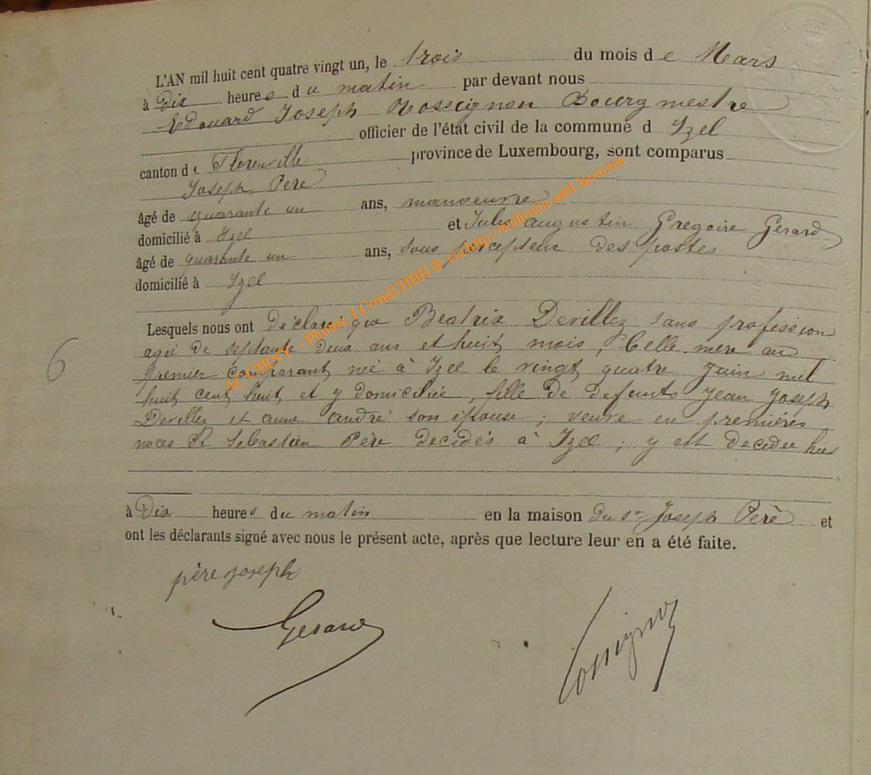 L'AN mil huit cent quatre vingt un, le trois du mois de Mars
à Dix heures du matin par devant nous
Edouard Joseph Rossignon Bourgmestre
officier de l'état civil de la commune d Izel
canton de Florenville province de Luxembourg, sont comparus
Joseph Père
âgé de quarante un ans, manoeuvre
domicilié à Izel et Jules augustin Gregoire Gerard
âgé de quarante un ans, sous percepteur des postes
domicilié à Izel
Lesquels nous ont déclaré que Beatrix Devillez sans profession
agée de septante deux ans et huit mois, belle mere au
premier comparant né à Izel le vingt quatre juin mil
huit cent huit et y domiciliée, fille de defunts Jean Joseph
Devillez et anne andré son épouse ; veuve en premières
noces de Sebastien Père decidés à Izel ; y est decidee hier
6
à Dix heures du matin en la maison du sr Joseph Père et
ont les déclarants signé avec nous le présent acte, après que lecture leur en a été faite.
père joseph
Gerard
Rossignon